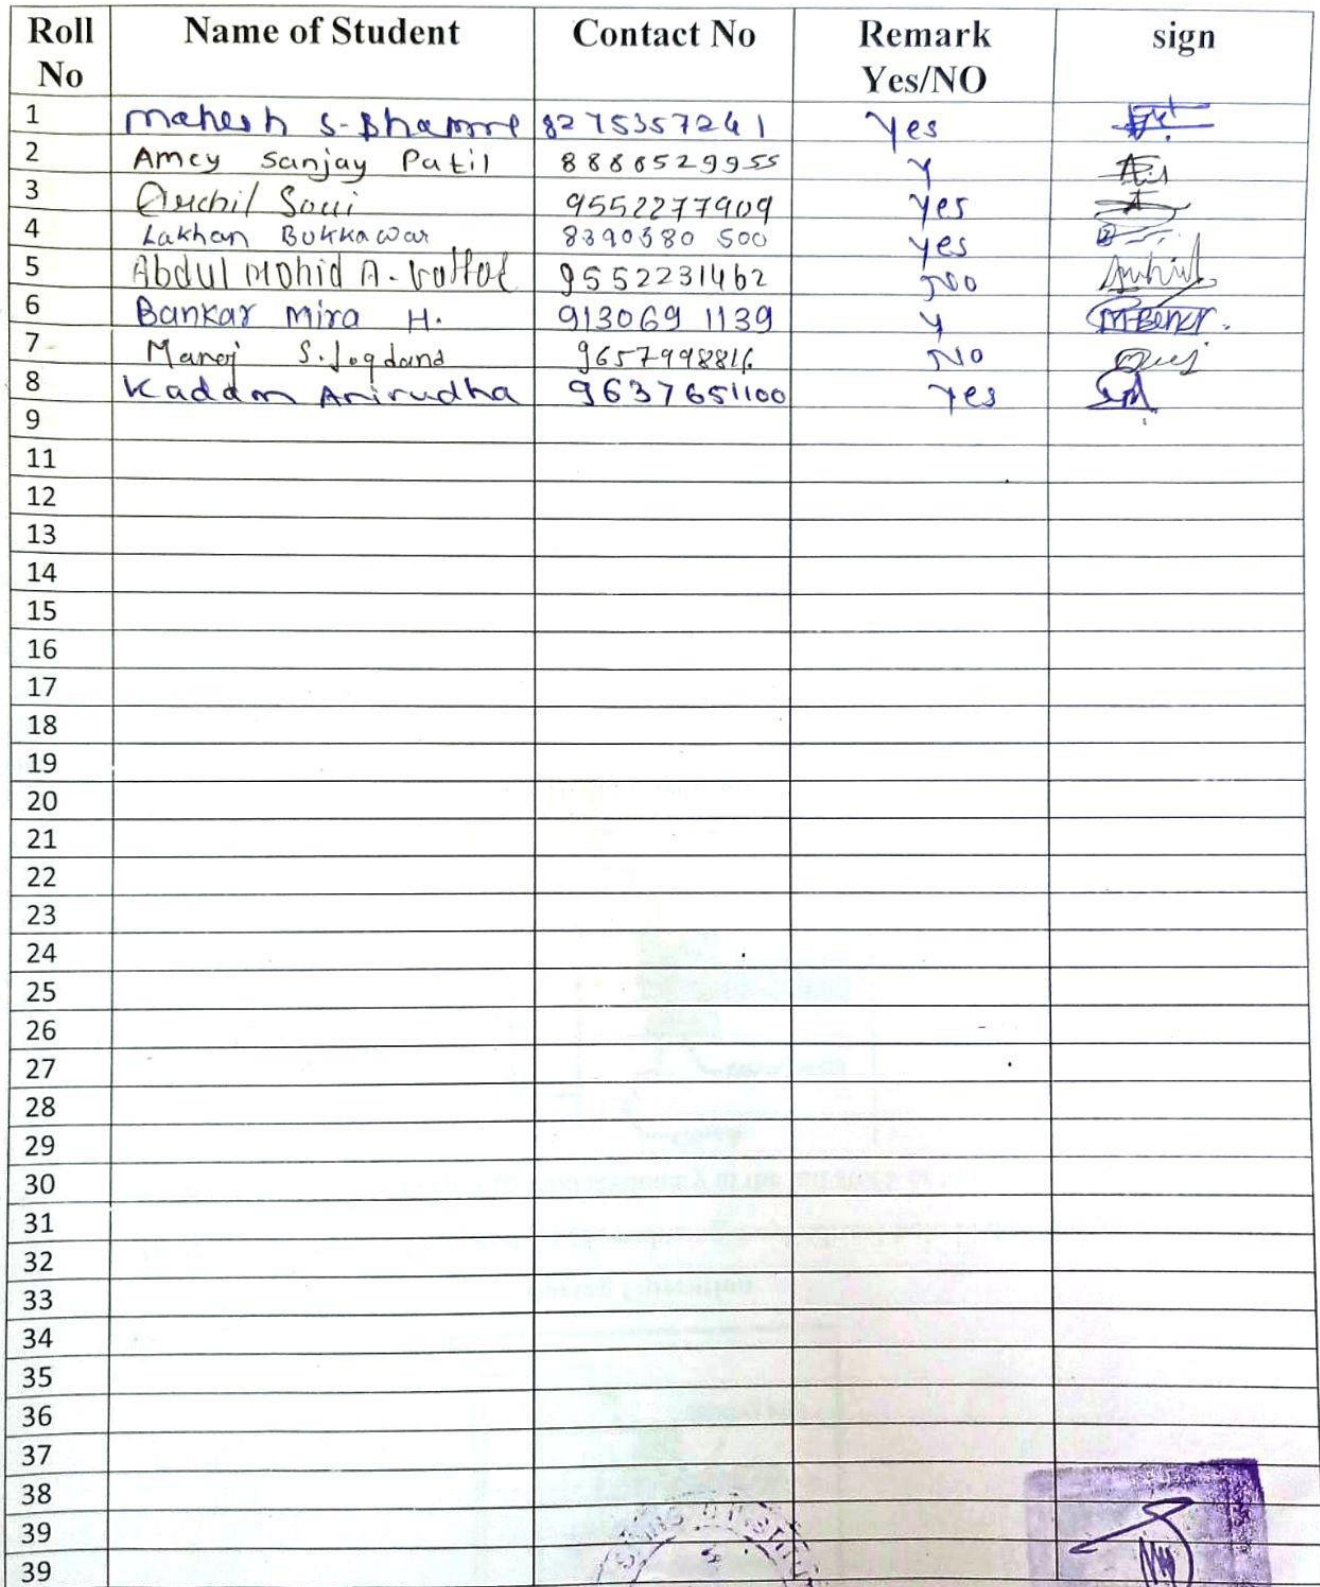 Roll No Name of Student Contact No Remark Yes/NO sign
1 Mahesh S. Bhamre 8275357241 Yes
2 Amey Sanjay Patil 8888529955 Y
3 9552277909 Yes
4 Lakhan Bukkawar 8390380 500 yes
5 Abdul Mohid A. 9552231462 No
6 Bankar Mira H. 913069 1139 y
7 Manoj S. Jogdand NO
8 Kadam Anirudha 9637651100 Yes
9
11
12
13
14
15
16
17
18
19
20
21
22
23
24
25
26
27
28
29
30
31
32
33
34
35
36
37
38
39
39